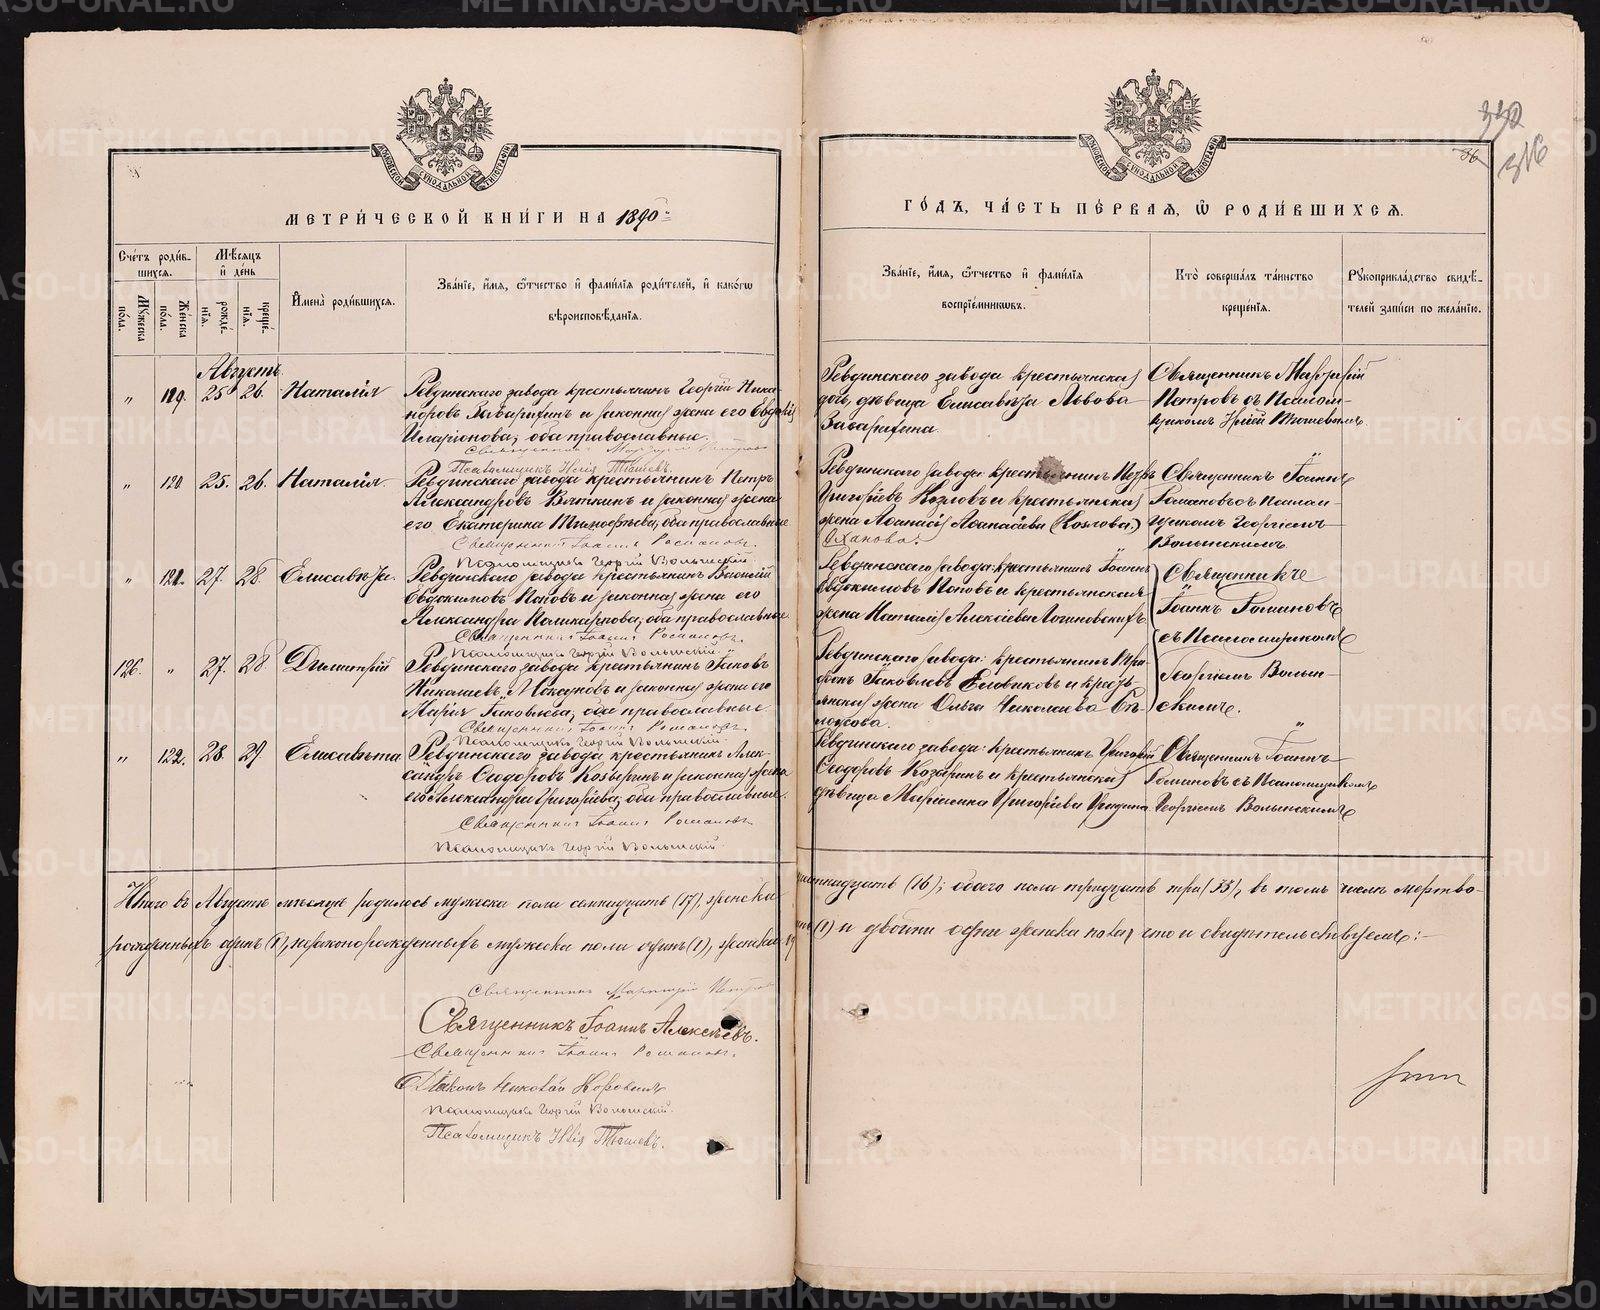 МЕТРИ́ЧЕСКОЙ КНИ́ГИ НА 1890
ГО́ДЪ, ЧА́СТЬ ПЕ́РВАЯ, Ѡ҆ РОДИ́ВШИХСЯ.
Сче́тъ роди́в-
шихся.
Мꙋжеска по́ла.
Же́нска по́ла.
Мѣ́сяцъ и҆ де́нь
рожде́нїя.
креще́нїя.
И҆мена̀ роди́вшихся.
Зва́нїе, и҆́мя, ѻ҆́тчество и҆ фами́лїя роди́телей, и҆ како́гѡ
вѣроисповѣ́данїя.
Зва́нїе, и҆́мя, ѻ҆́тчество и҆ фами́лїя
воспрїе́мниковъ.
Кто̀ соверша́лъ та́инство
креще́нїя.
Рꙋкоприкла́дство свидѣ́-
телей за́писи по жела́нїю.
Августъ
„ 119. 25 26. Наталія
Ревдинскаго завода крестьянинъ Георгій Ника-
норовъ Заварихинъ и законная жена его Евдокія
Иларіонова; оба православные.
Псаломщикъ Илія Тышевъ.
Ревдинскаго завода крестьянская
дочь, дѣвица Елисавета Львова
Заварихина
Священникъ Маркелій
Петровъ съ Псалом-
щикомъ Иліей Тышевымъ
„ 120 25. 26. Наталія.
Ревдинскаго завода крестьянинъ Петръ
Александровъ Вяткинъ и законная жена
его Екатерина Тимофеева; оба православные
Священникъ Іоаннъ Романовъ.
Псаломщикъ Георгій Волынскій
Ревдинскаго завода: крестьянинъ Петръ
Григорьевъ Козловъ и крестьянская
жена
Священникъ Іоаннъ
Романовъ съ Псалом-
щикомъ Георгіемъ
Волынскимъ
„ 121. 27. 28. Елисавета.
Ревдинскаго завода крестьянинъ Василій
Евдокимовъ Поповъ и законная жена его
Александра Поликарпова; оба православные
Священникъ Іоаннъ Романовъ.
Псаломщикъ Георгій Волынскій.
Ревдинскаго завода: крестьянинъ Іоаннъ
Евдокимовъ Поповъ и крестьянская
жена Наталія Алексіева
Священникъ
Іоаннъ Романовъ
съ Псаломщикомъ
Георгіемъ Волын-
скимъ.
126. „ 27. 28 Димитрій
Ревдинскаго завода крестьянинъ Іаковъ
Николаевъ Мокруновъ и законная жена его
Марія Іаковлева; оба православные
Священникъ Іоаннъ Романовъ.
Псаломщикъ Георгій Волынскій.
Ревдинскаго завода: крестьянинъ Три-
фонъ Іаковлевъ Еловиковъ и кресть-
янская жена Ольга Николаева Бѣ-
лоусова.
„ 122. 28. 29. Елисавета
Ревдинскаго завода крестьянинъ Алек-
сандръ Ѳеодоровъ Козыринъ и законная жена
его Александра Григорьева; оба православные.
Священникъ Іоаннъ Романовъ.
Псаломщикъ Георгій Волынскій.
Ревдинскаго завода: крестьянинъ Григорій
Ѳеодоровъ Козыринъ и крестьянская
дѣвица Маріамна Григорьева
Священникъ Іоаннъ
Романовъ съ Псаломщикомъ
Георгіемъ Волынскимъ
Итого въ Августѣ мѣсяцѣ родилось мужеска пола семнадцать (17), женска
шестнадцать (16); обоего пола тридцать три (33), въ томъ числѣ мертво-
рожденныхъ одинъ (1), незаконорожденныхъ мужеска пола одинъ (1), женска
(1) и двойни одни женска пола, что и свидѣтельствуемъ:-
Священникъ Маркелій Петровъ
Священникъ Іоаннъ Алексѣевъ.
Священникъ Іоаннъ Романовъ.
Діаконъ Николай
Псаломщикъ Георгій Волынскій.
Псаломщикъ Илія Тышевъ.
METRIKI.GASO-URAL.RU